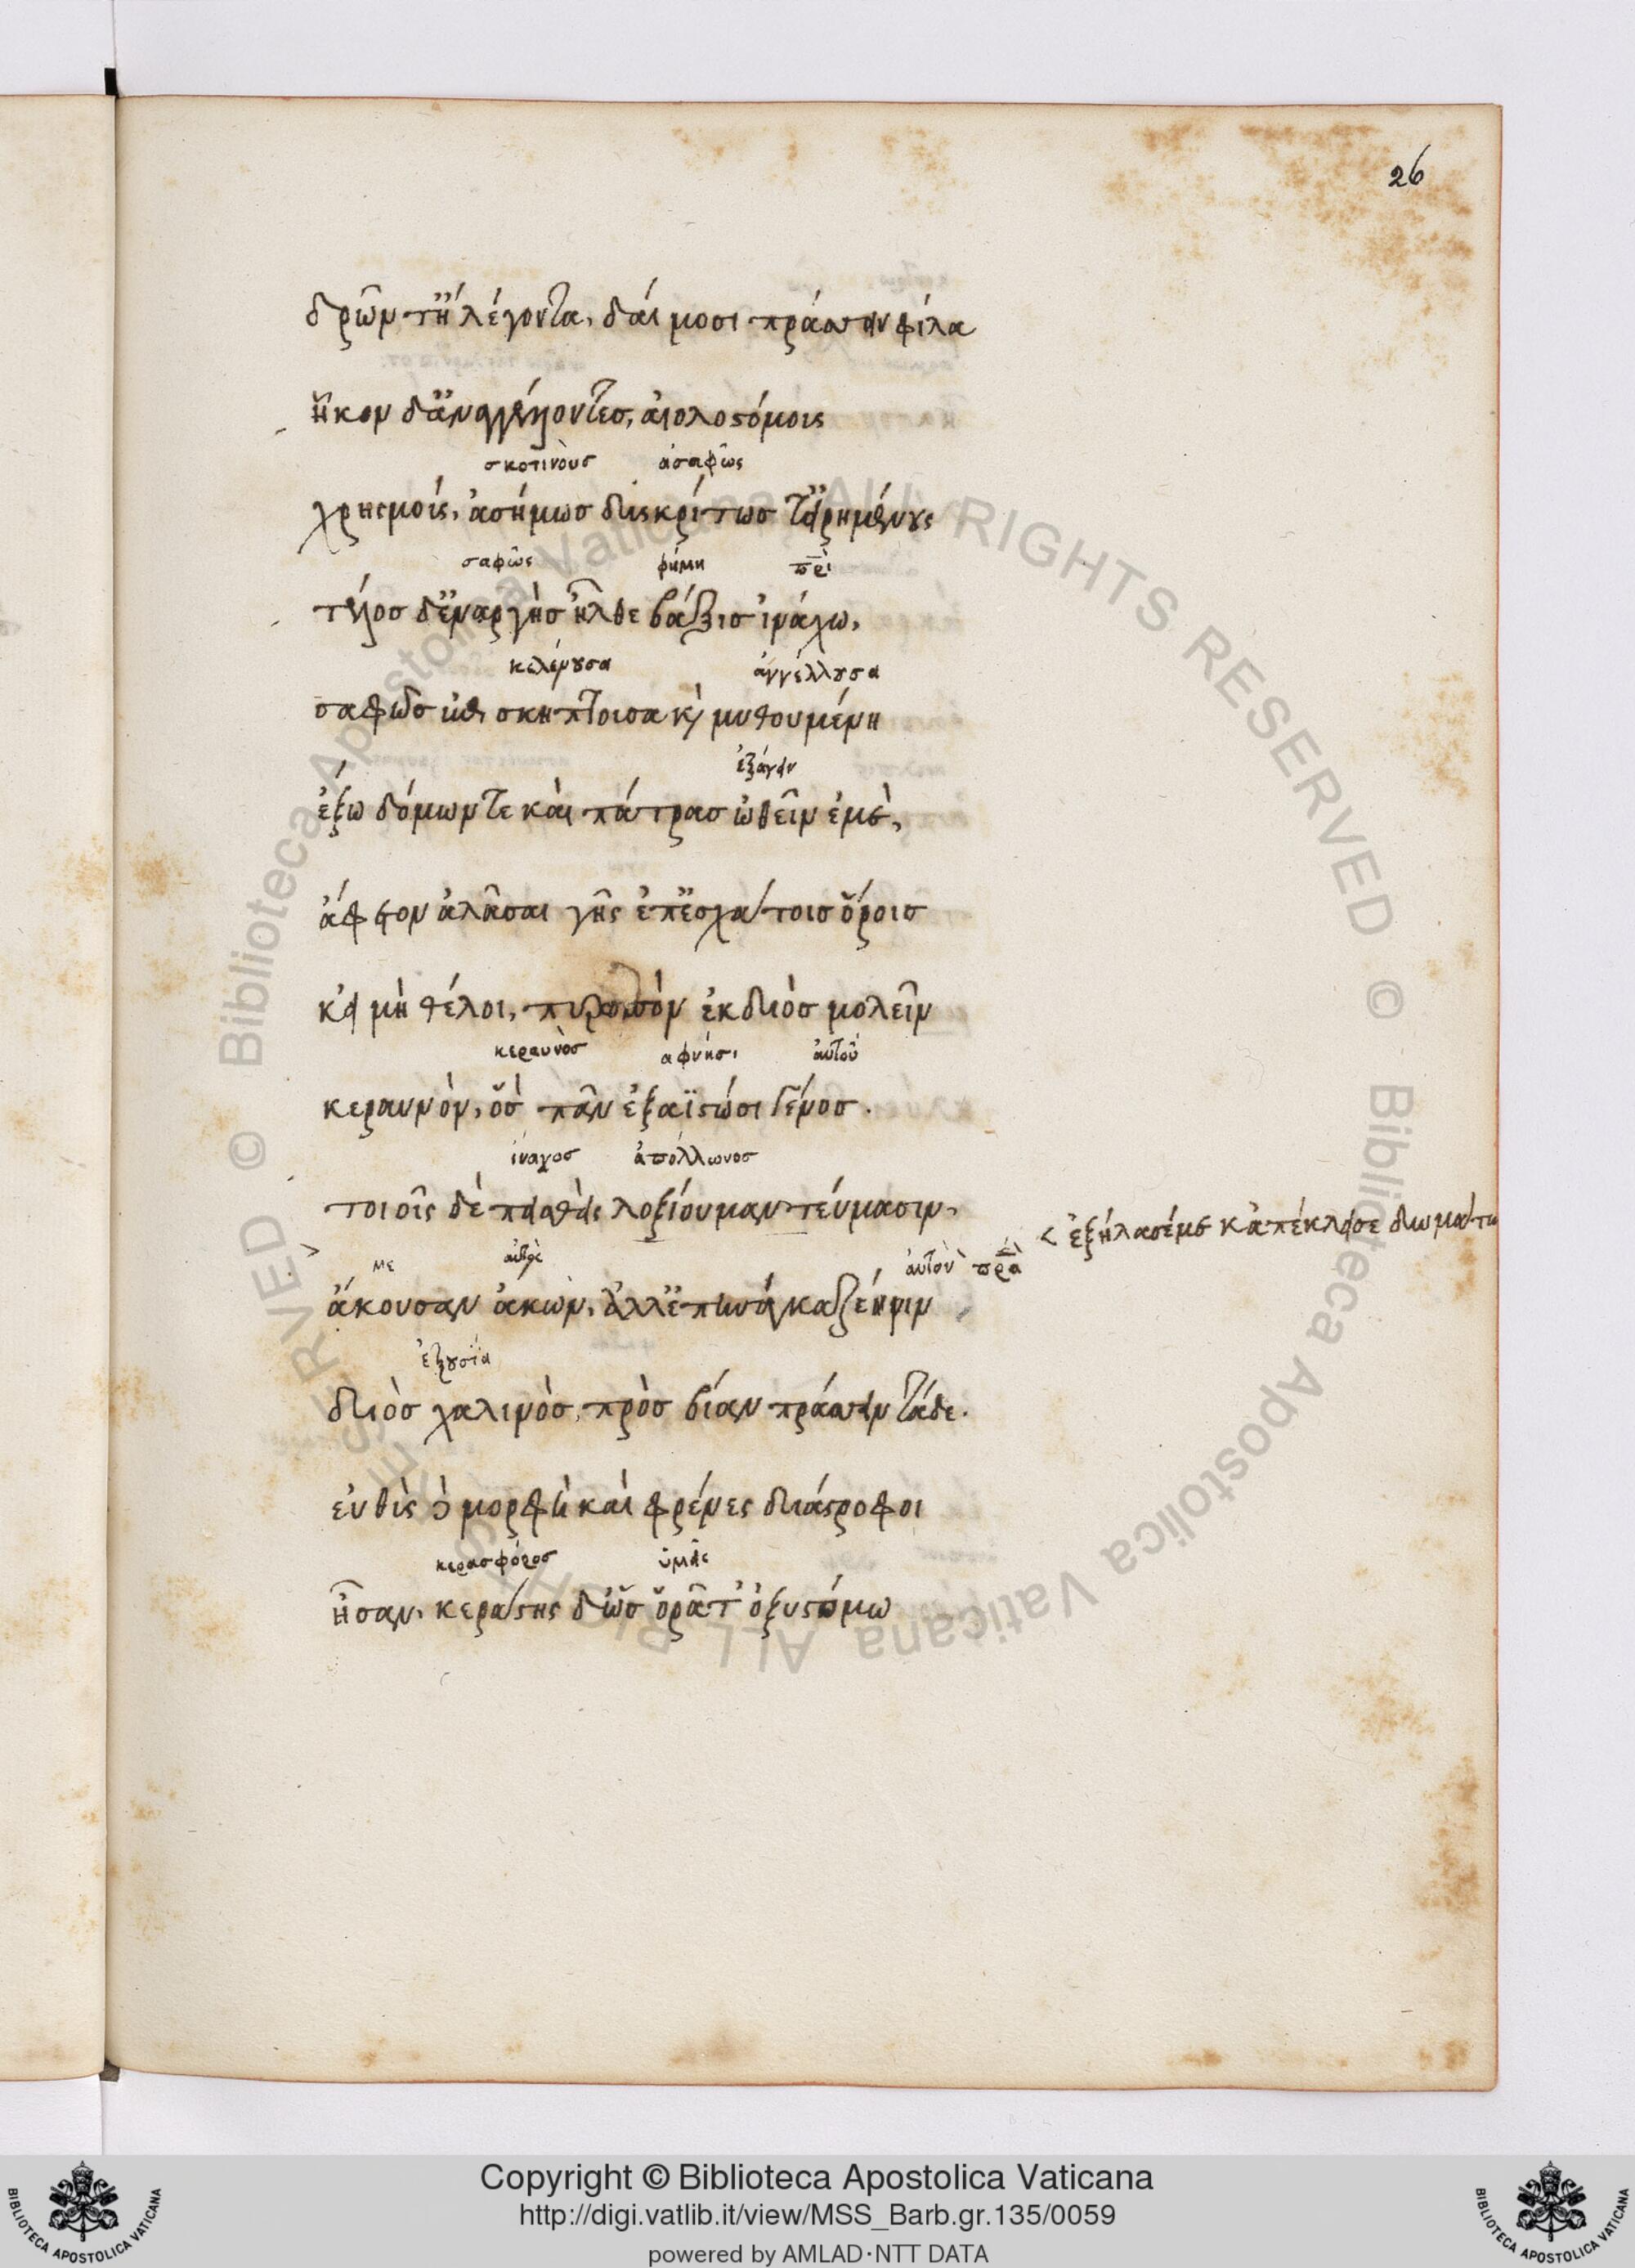 26
δρῶντ' ἢ λέγοντα, δαίμοσι πράσσειν φίλα
ἧκον δ' ἀναγγέλλοντες, αἰολοστόμοις
σκοτινοὺς ἀσαφῶς
χρησμοὶς, ἀσήμως δυσκρίτως τ' εἰρημένους
σαφῶς φήμη περὶ
τέλος δ' ἐναργὴς ἦλθε βάξις ἰνάχω,
κελεύουσα ἀγγέλλουσα
σαφῶς ἐπισκήπτουσα καὶ μυθουμένη
ἐξάγειν
ἔξω δόμων τε καὶ πάτρας ὠθεῖν ἐμὲ,
ἄφετον ἀλᾶσθαι γῆς ἐπ' ἐσχάτοις ὅροις
κεἰ μὴ θέλοι, πυρωπὸν ἐκ διὸς μολεῖν
κεραυνὸς ἀφανήσει αὐτοῦ
κεραυνὸν, ὃς πᾶν ἐξαϊστώσει γένος.
ἴναχος ἀπόλλωνος
τοιοῖς δὲ πεισθεὶς λοξίου μαντεύμασιν,
< ἐξήλασέ με κἀπέκλεισε δωμάτω
με αὐτὸς αὐτὸν παρὰ
ἄκουσαν ἀκὼν, ἀλλ' ἐπηνάγκαζέ νιν
ἐξουσία
διὸς χαλινὸς, πρὸς βίαν πράσσειν τάδε.
εὐθὺς δὲ μορφὴ καὶ φρένες διάστροφοι
κερασφόρος ὑμεῖς
ἦσαν, κεράστης δ' ὡς ὁρᾶτ' ὀξυστόμω
Copyright © Biblioteca Apostolica Vaticana
http://digi.vatlib.it/view/MSS_Barb.gr.135/0059
powered by AMLAD·NTT DATA